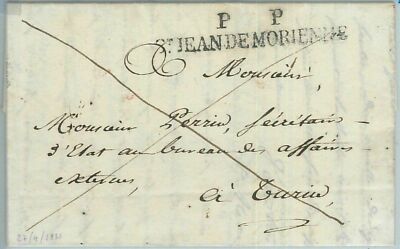 P P
St JEAN DE MORIENNE
Monsieur,
Monsieur Perrin, Secrétaire
d'Etat au bureau des affaires
externes,
à Turin,